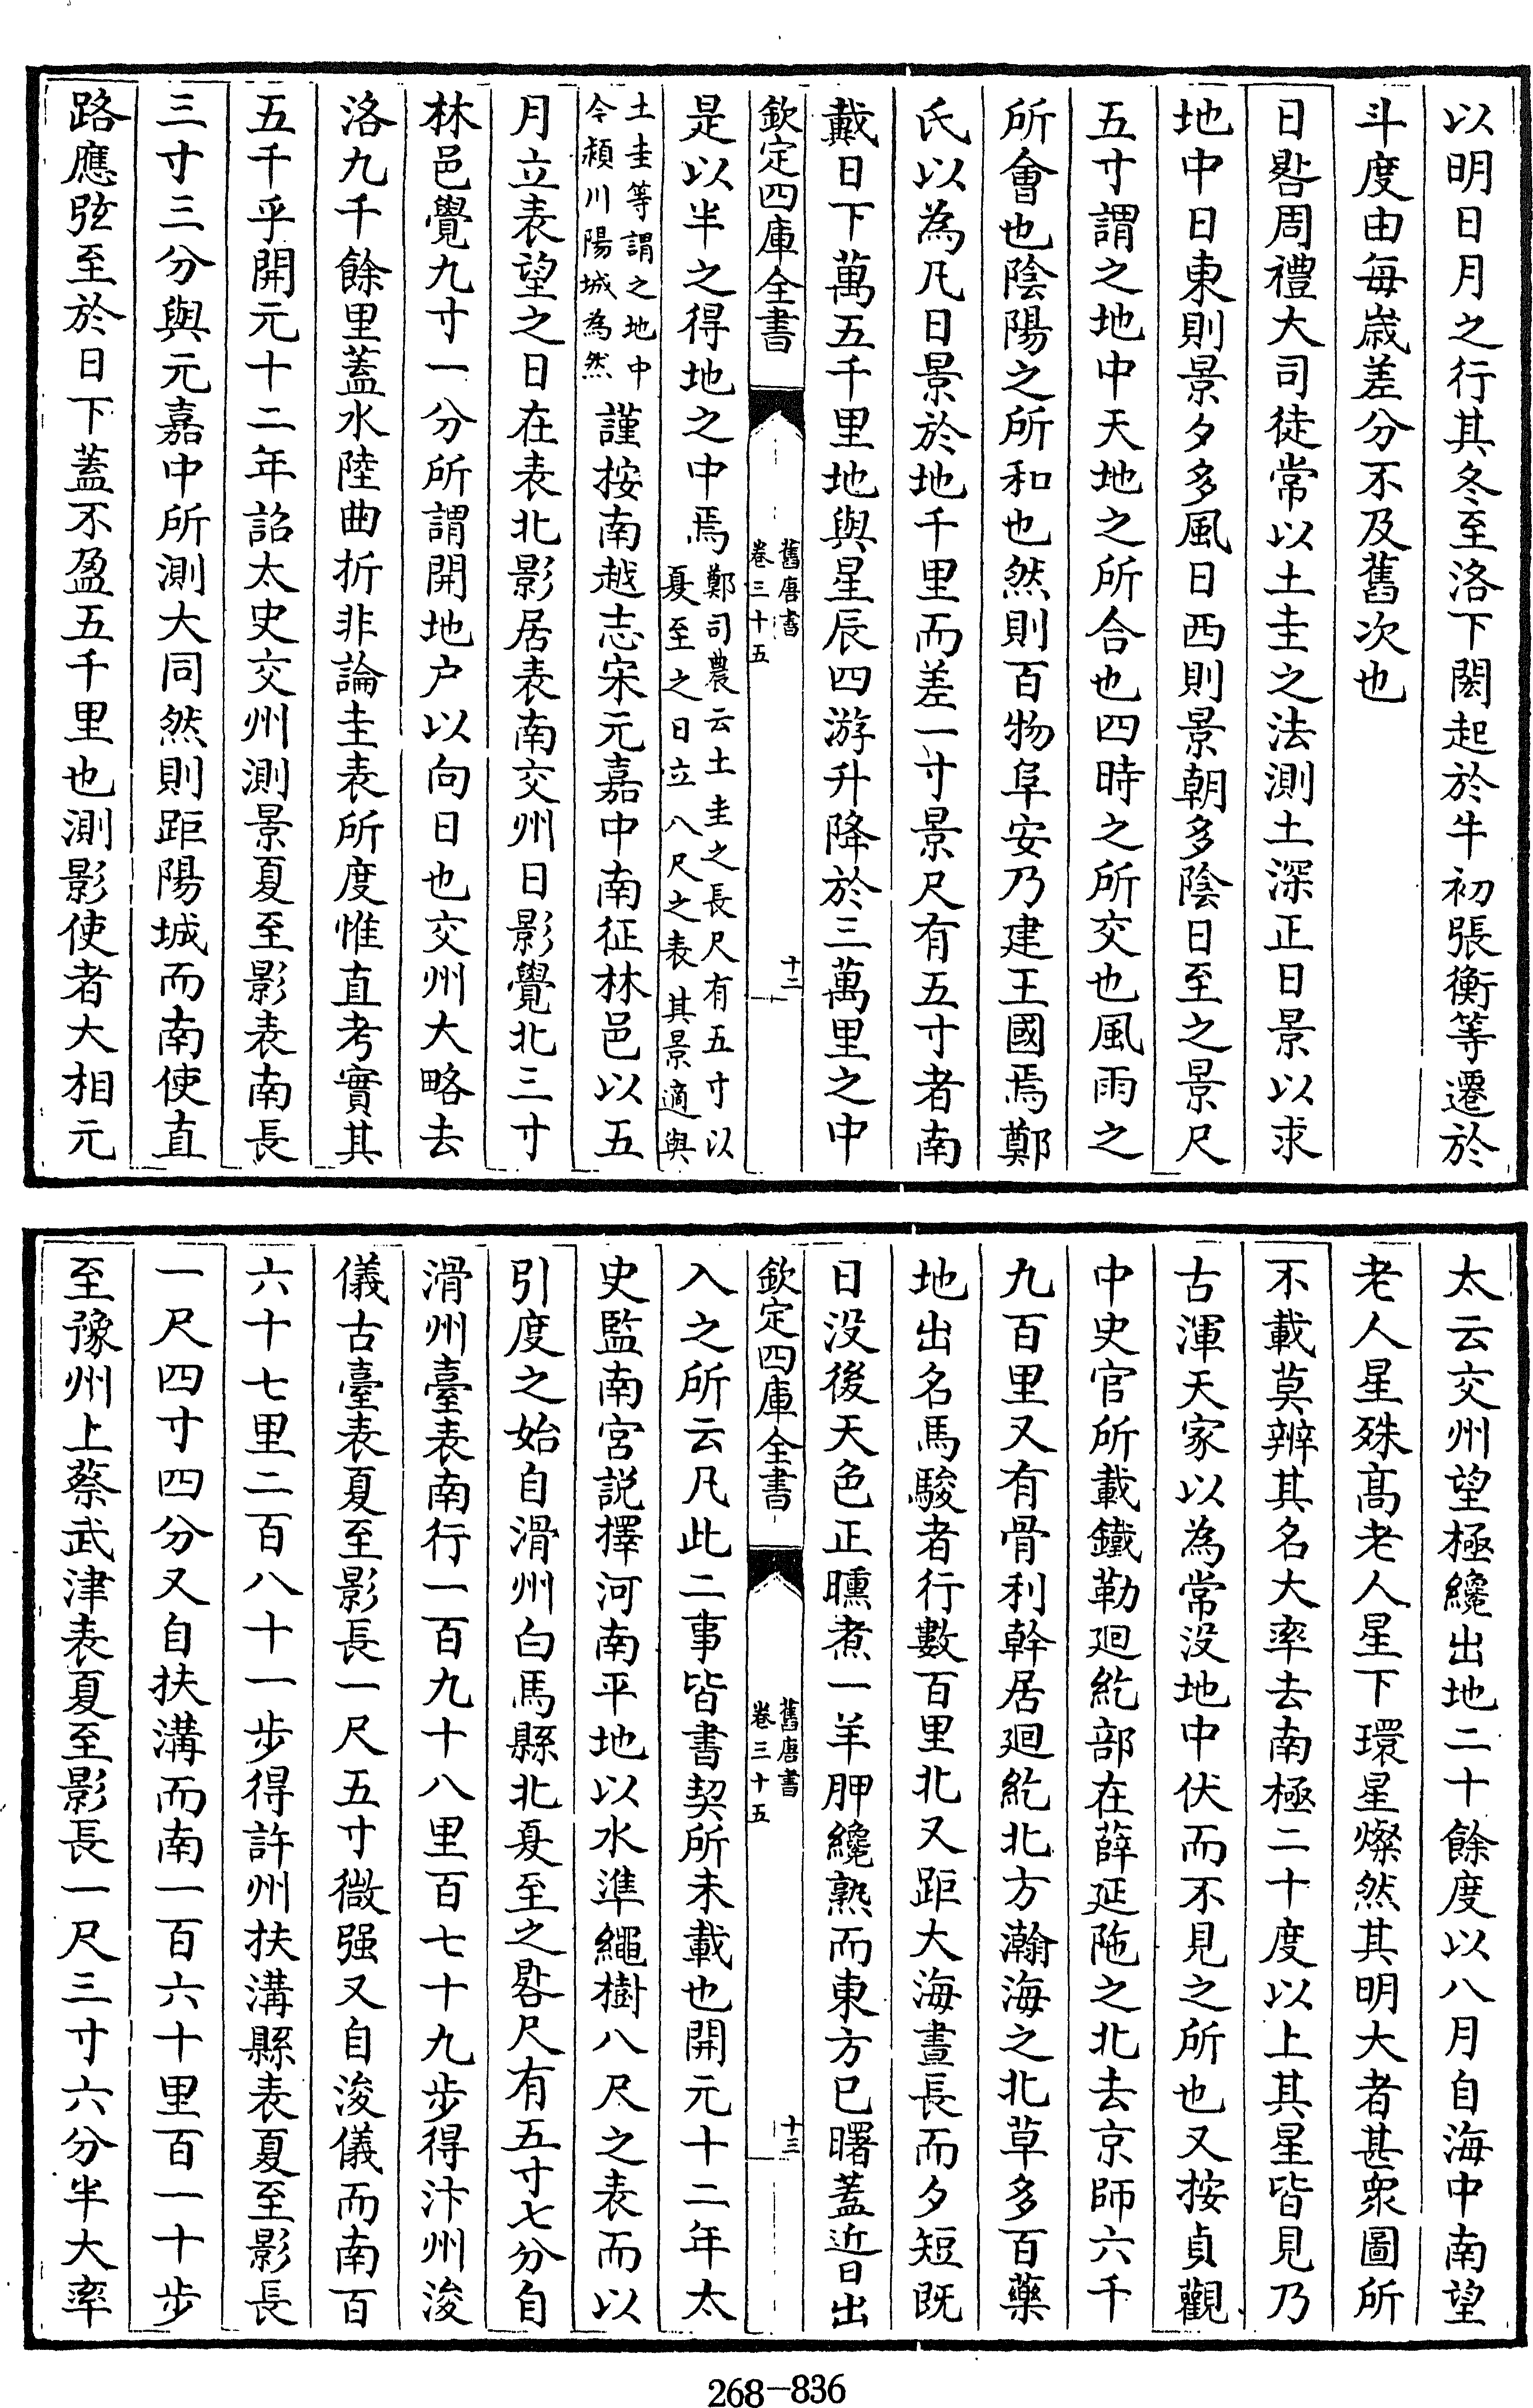 以明日月之行其冬至洛下閎起於牛初張衡等遷於
斗度由每嵗差分不及舊次也
日晷周禮大司徒常以土圭之法測土深正日景以求
地中日東則景夕多風日西則景朝多陰日至之景尺
五寸謂之地中天地之所合也四時之所交也風雨之
所會也陰陽之所和也然則百物阜安乃建王國焉鄭
氏以為凡日景於地千里而差一寸景尺有五寸者南
戴日下萬五千里地與星辰四游升降於三萬里之中
欽定四庫全書
舊唐書
卷三十五
十二
是以半之得地之中焉鄭司農云土圭之長尺有五寸以
夏至之日立八尺之表其景適與
土圭等謂之地中
今潁川陽城為然
謹按南越志宋元嘉中南征林邑以五
月立表望之日在表北影居表南交州日影覺北三寸
林邑覺九寸一分所謂開地户以向日也交州大略去
洛九千餘里蓋水陸曲折非論圭表所度惟直考實其
五千乎開元十二年詔太史交州測景夏至影表南長
三寸三分與元嘉中所測大同然則距陽城而南使直
路應弦至於日下蓋不盈五千里也測影使者大相元
太云交州望極纔出地二十餘度以八月自海中南望
老人星殊髙老人星下環星燦然其明大者甚衆圖所
不載莫辨其名大率去南極二十度以上其星皆見乃
古渾天家以為常没地中伏而不見之所也又按貞觀
中史官所載鐵勒廻紇部在薛延陁之北去京師六千
九百里又有骨利幹居廻紇北方瀚海之北草多百藥
地出名馬駿者行數百里北又距大海晝長而夕短既
日没後天色正曛煮一羊胛纔熟而東方已曙蓋近日出
欽定四庫全書
舊唐書
卷三十五
十三
入之所云凡此二事皆書契所未載也開元十二年太
史監南宫説擇河南平地以水準繩樹八尺之表而以
引度之始自滑州白馬縣北夏至之晷尺有五寸七分自
滑州臺表南行一百九十八里百七十九步得汴州浚
儀古臺表夏至影長一尺五寸微强又自浚儀而南百
六十七里二百八十一步得許州扶溝縣表夏至影長
一尺四寸四分又自扶溝而南一百六十里百一十步
至豫州上蔡武津表夏至影長一尺三寸六分半大率
268-836